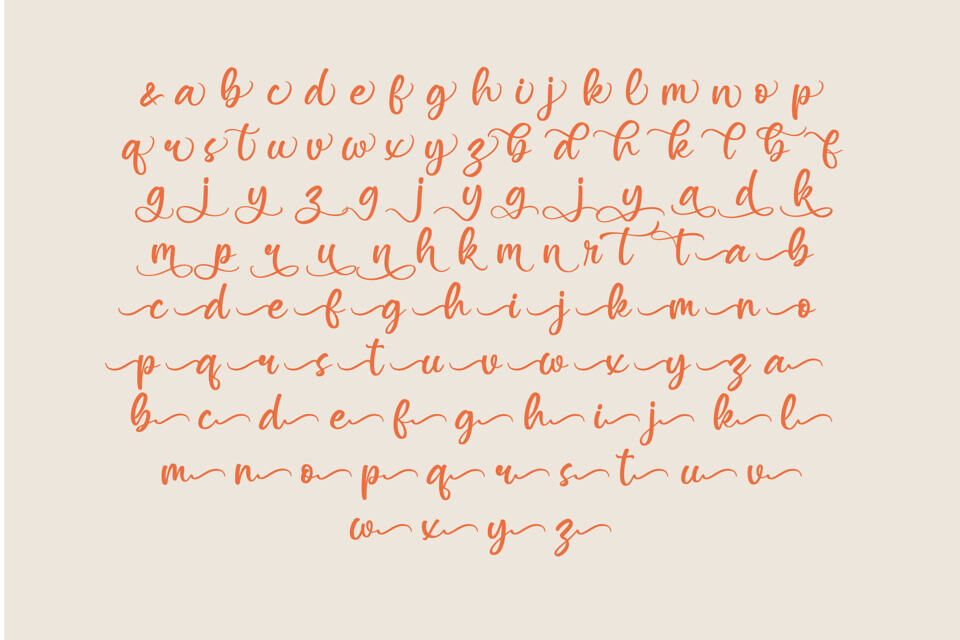 & a b c d e f g h i j k l m n o p
q r s t u v w x y z b d h k l b f
g j y z g j y g j y a d k
m p r u n h k m n r t t a b
c d e f g h i j k m n o
p q r s t u v w x y z a
b c d e f g h i j k l
m n o p q r s t u v
w x y z